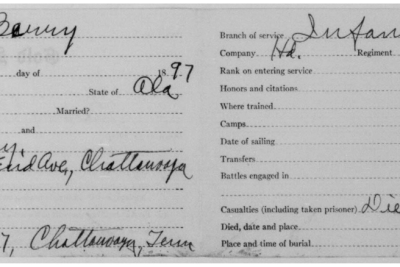 Berry
day of 1897
State of Ala
Married?
and
y.
Enid Ave, Chattanooga
7, Chattanooga, Tenn
Branch of service Infan
Company Hd. Regiment
Rank on entering service
Honors and citations
Where trained
Camps
Date of sailing
Transfers
Battles engaged in
Casualties (including taken prisoner) Die
Died, date and place
Place and time of burial